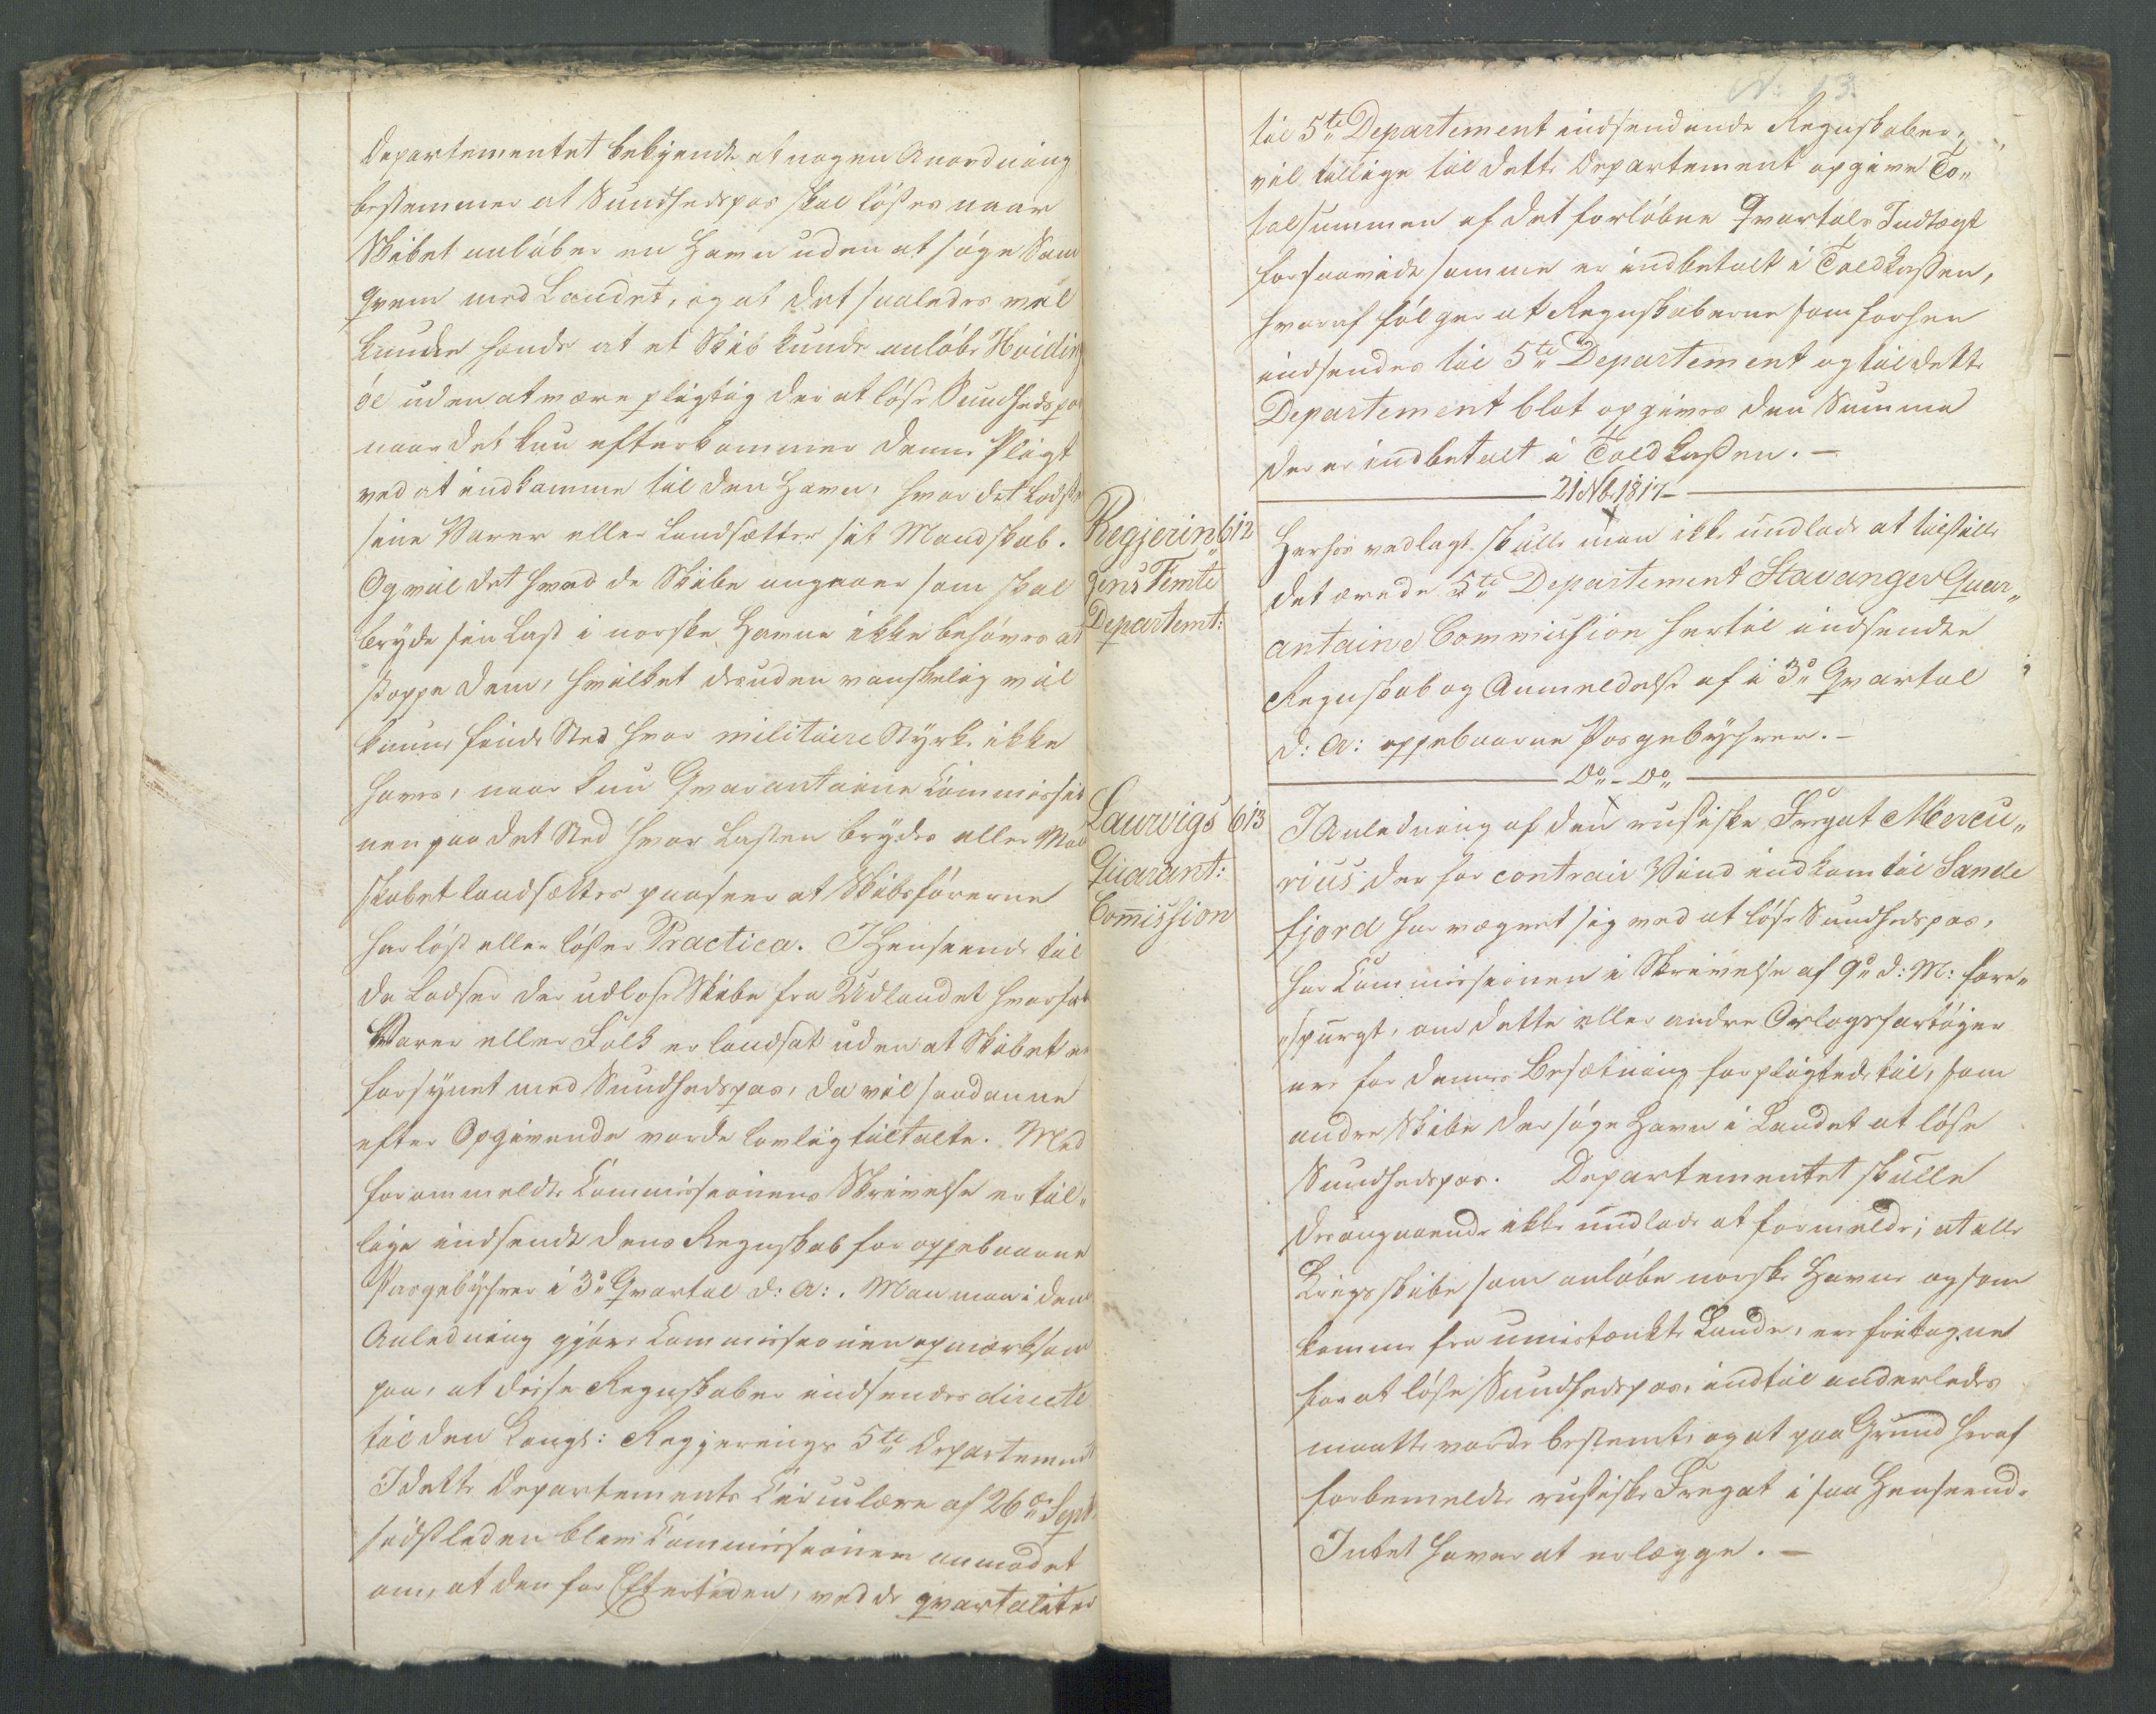 Departementet bekjendt at nogen Anordning
bestemmer at Sundhedspas skal löses naar
Skibet anlöber en Havn uden at söge Sam
qvem med Landet, og at det saaledes vel
kunde hende at et Skib kunde anlöbe Hvidings
öe uden at være pligtig der at löse Sundhedspas
naar det kun efterkommer denne Pligt
ved at indkomme til den Havn, hvor det losser
sine Varer eller landsætter sit Mandskab.
Og vil det hvad de Skibe angaaer som skal
bryde sin Last i norske Havne ikke behöves at
stoppe dem, hvilket desuden vanskelig vil
kunne finde Sted hvor militaire Styrke ikke
haves, naar kun Qvarantaine Commissio
nen paa det Sted hvor Lasten brydes eller Mand
skabet landsættes paaseer at Skibsförerne
har löst eller löser Practica. I Henseende til
de Lodser der udlose Skibe fra Udlandet hvorfra
Varer eller Folk er landsat uden at Skibet er
forsÿnet med Sundhedspas, da vil saadanne
efter Opgivende vorde lovlig tiltalte. Med
forommeldte Commissionens Skrivelse er til„
lige indsendt dens Regnskab for oppebaarne
Pasgebÿhrer i 3„ Qvartal d: A:. Man maa i den
Anledning gjöre Commissionen opmærksom
paa, at disse Regnskaber indsendes directe
til den Kongl: Regjerings 5te Departement
I dette Departements Circulære af 26de Sept:
sidstleden blev Commissionen anmodet
om, at den for Eftertiden, ved de qvartaliter
N: 13.
til 5te Departement indsendende Regnskaber,
vil tillige til dette Departement opgive To„
talsummen af det forlöbne Qvartals Indtægt
forsaavidt samme er indbetalt i Toldkassen,
hvoraf fölger at Regnskaberne som forhen
indsendes til 5te Departement og til dette
Departement blot opgives den Summa
der er indbetalt i Toldkassen. —
21 Nbr 1817
Regjerin„ 612
gens Femte
Departemt:
Herhos vedlagt skulle man ikke undlade at tilstille
det ærede 5te Departement Stavanger Quar„
antaine Commission hertil indsendte
Regnskab og Anmeldelse af i 3„ Qvartal
d: A: oppebaarne Pasgebÿhrer. —
D„o - D„o
Laurvigs 613
Quarant:
Commission
I Anledning af den russiske Fregat Mercu„
rius der for contrair Vind indkom til Sande
fjord har vægret sig ved at löse Sundhedspas,
har Commissionen i Skrivelse af 9„ d: M: fore„
„spurgt, om dette eller andre Orlogsfartöjer
ere for deres Besætning forpligtede til, som
andre Skibe der söge Havn i Landet at löse
Sundhedspas. Departementet skulle
desangaaende ikke undlade at formelde, at alle
Krigsskibe som anlöbe norske Havne og som
komme fra umistænkte Lande, ere fritagne
for at löse Sundhedspas, indtil anderledes
maatte vorde bestemt, og at paa Grund heraf
forbemeldte russiske Fregat i saa Henseende
Intet haver at erlægge. —